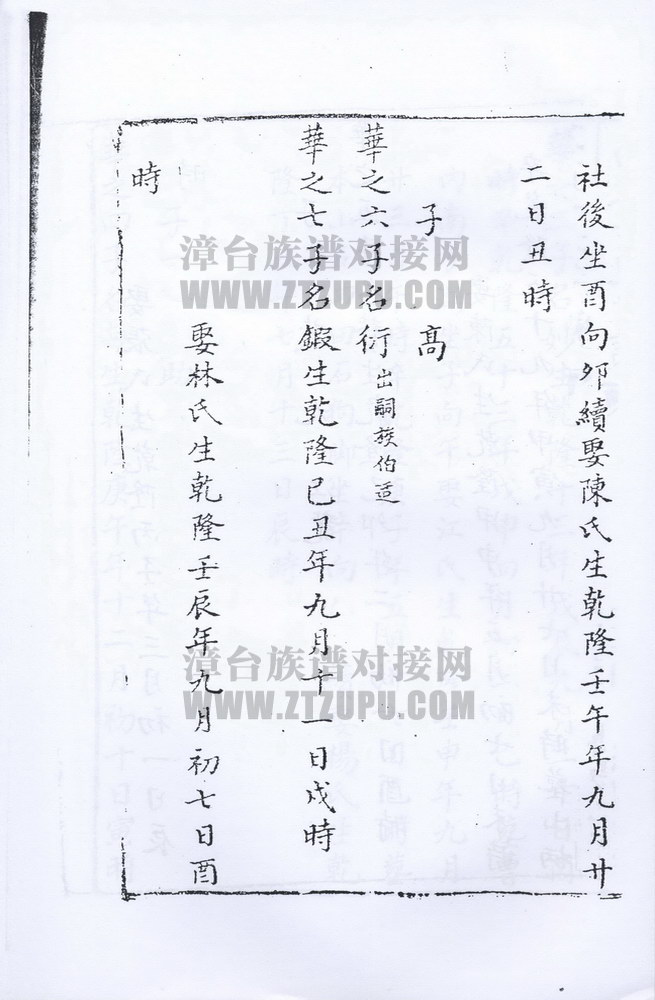 社後坐酉向夘續娶陳氏生乾隆壬午年九月廿
二日丑時
子 高
華之六子名衍出嗣族伯迋
華之七子名鍜生乾隆己丑年九月十一日戍時
娶林氏生乾隆壬辰年九月初七日酉
時
漳台族谱对接网
WWW.ZTZUPU.COM
漳台族谱对接网
WWW.ZTZUPU.COM